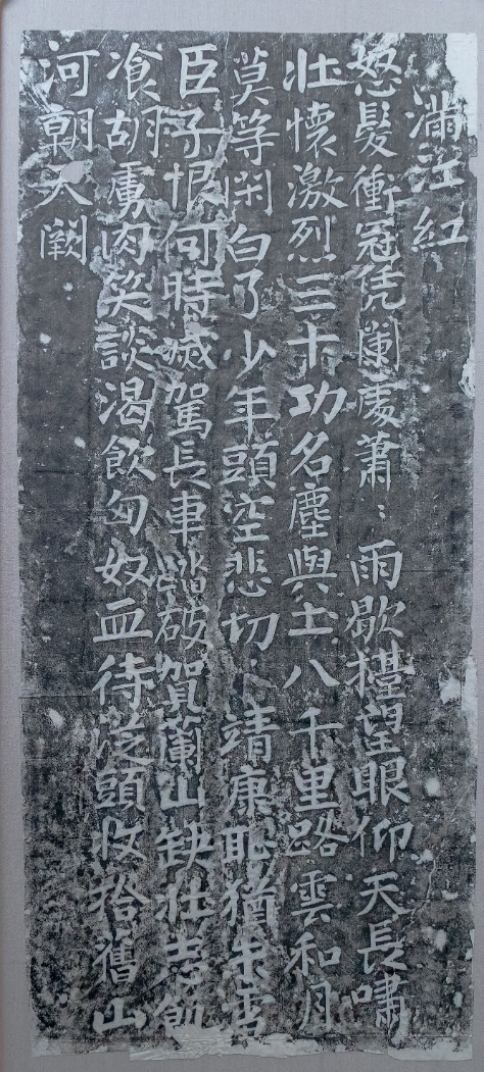 滿江紅
怒髮衝冠凭闌處蕭〻雨歇擡望眼仰天長嘯
壯懷激烈三十功名塵與土八千里路雲和月
莫等閑白了少年頭空悲切 靖康恥猶未雪
臣子恨何時滅駕長車踏破賀蘭山缺壯志飢
飡胡虜肉笑談渴飲匈奴血待從頭收拾舊山
河朝天闕